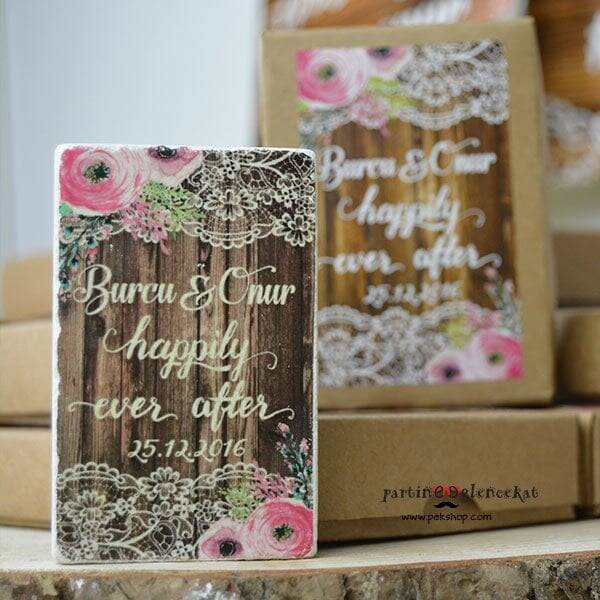 Burcu & Onur
happily
ever after
25.12.2016
Burcu & Onur
happily
ever after
25.12.2016
www.pekshop.com